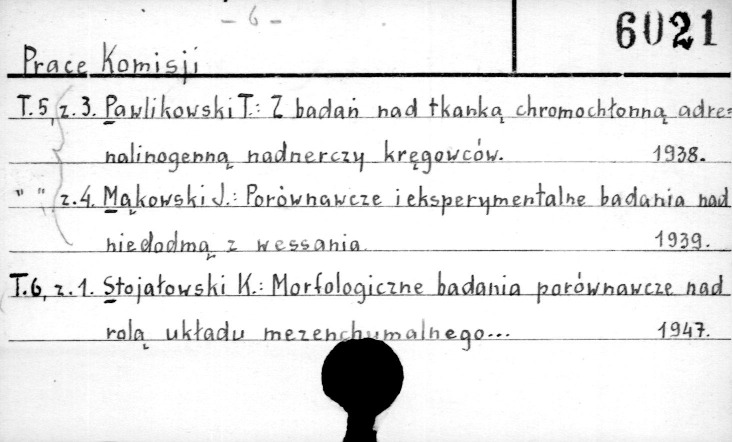 - 6 -
6021
Prace Komisji
T.5, z.3. Pawlikowski T.: Z badań nad tkanką chromochłonną adre=
nalinogenną nadnerczy kręgowców. 1938.
" " z.4. Mąkowski J.: Porównawcze i eksperymentalne badania nad
niedodmą z wessania. 1939.
T.6, z.1. Stojałowski K.: Morfologiczne badania porównawcze nad
rolą układu mezenchymalnego... 1947.